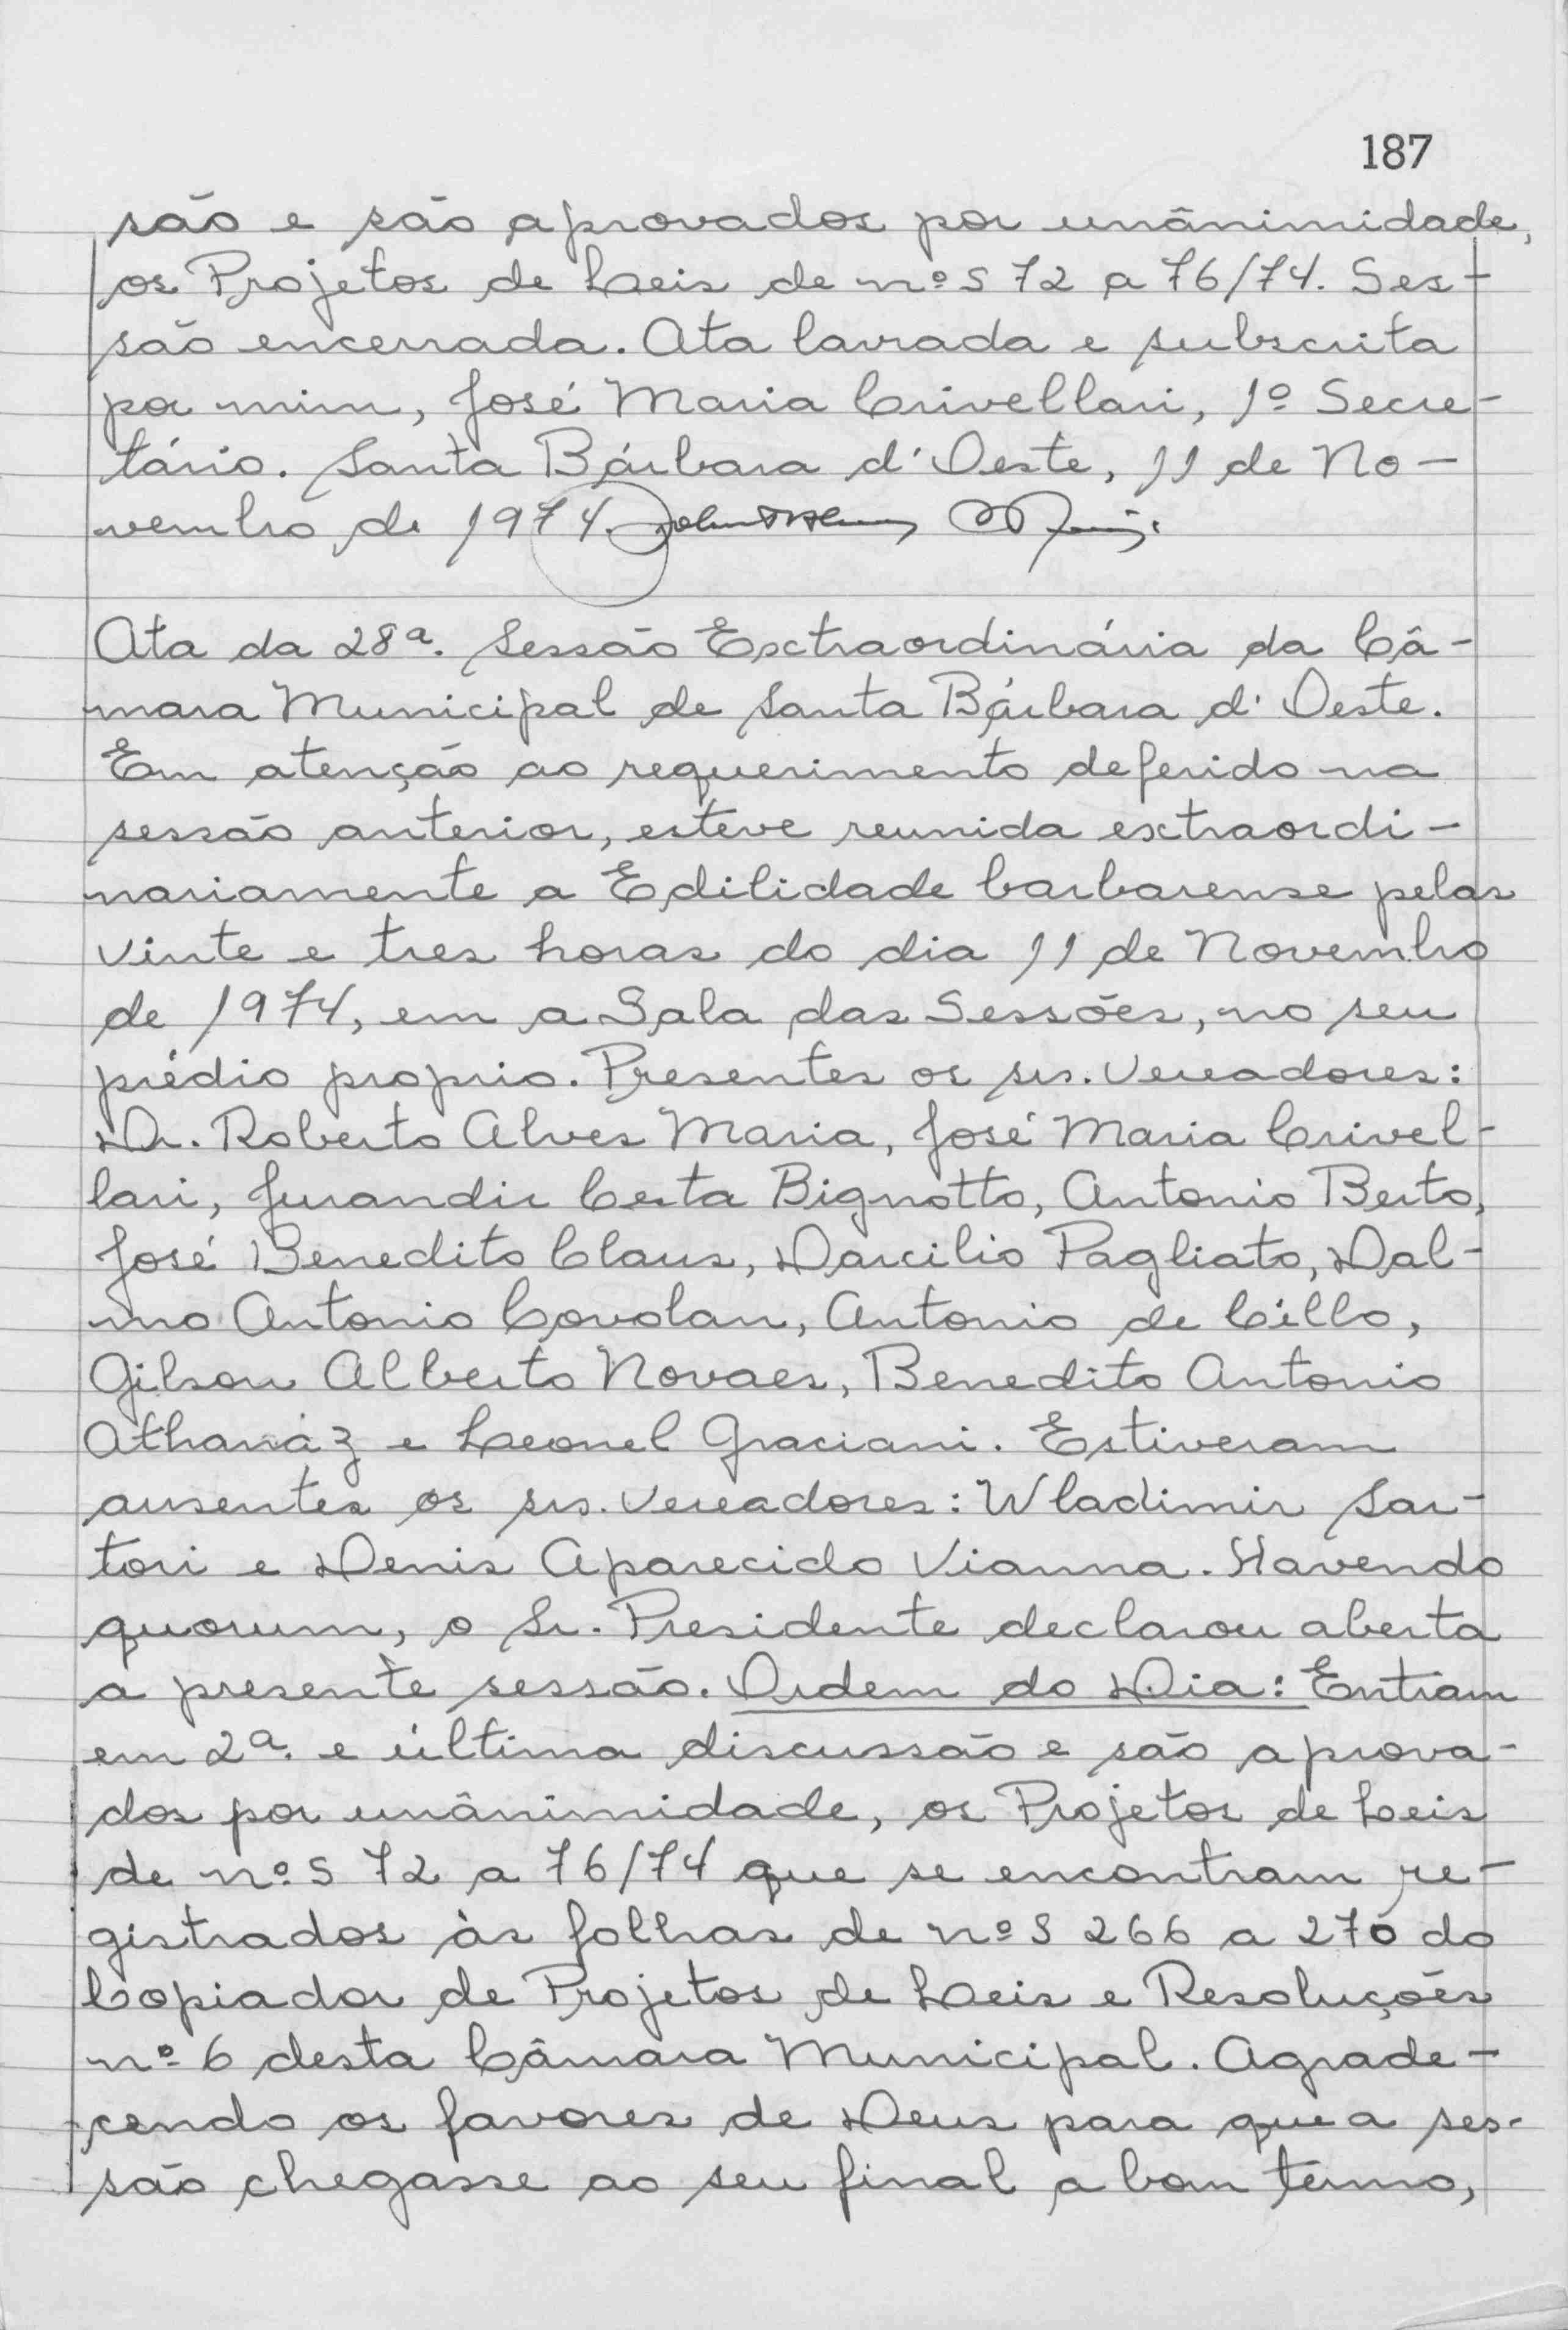 187
são e são aprovados por unânimidade,
os Projetos de Leis de nºs 72 a 76/74. Ses-
são encerrada. Ata lavrada e subscrita
por mim, José Maria Crivellari, 1º Secre-
tário. Santa Bárbara d'Oeste, 11 de No-
vembro de 1974.
Ata da 28ª. Sessão Extraordinária da Câ-
mara Municipal de Santa Bárbara d'Oeste.
Em atenção ao requerimento deferido na
sessão anterior, esteve reunida extraordi-
nariamente a Edilidade barbarense pelas
vinte e tres horas do dia 11 de Novembro
de 1974, em a Sala das Sessões, no seu
prédio proprio. Presentes os srs. Vereadores:
Dr. Roberto Alves Maria, José Maria Crivel-
lari, Jurandir Certa Bignotto, Antonio Berto,
José Benedito Claus, Darcilio Pagliato, Dal-
mo Antonio Covolan, Antonio de Cillo,
Gilson Alberto Novaes, Benedito Antonio
Athanáz e Leonel Graciani. Estiveram
ausentes os srs. Vereadores: Wladimir Sar-
tori e Denis Aparecido Vianna. Havendo
quorum, o Sr. Presidente declarou aberta
a presente sessão. Ordem do Dia: Entram
em 2ª. e última discussão e são aprova-
dos por unânimidade, os Projetos de Leis
de nºs 72 a 76/74 que se encontram re-
gistrados às folhas de nºs 266 a 270 do
Copiador de Projetos de Leis e Resoluções
nº 6 desta Câmara Municipal. Agrade-
cendo os favores de Deus para que a ses-
são chegasse ao seu final a bom termo,